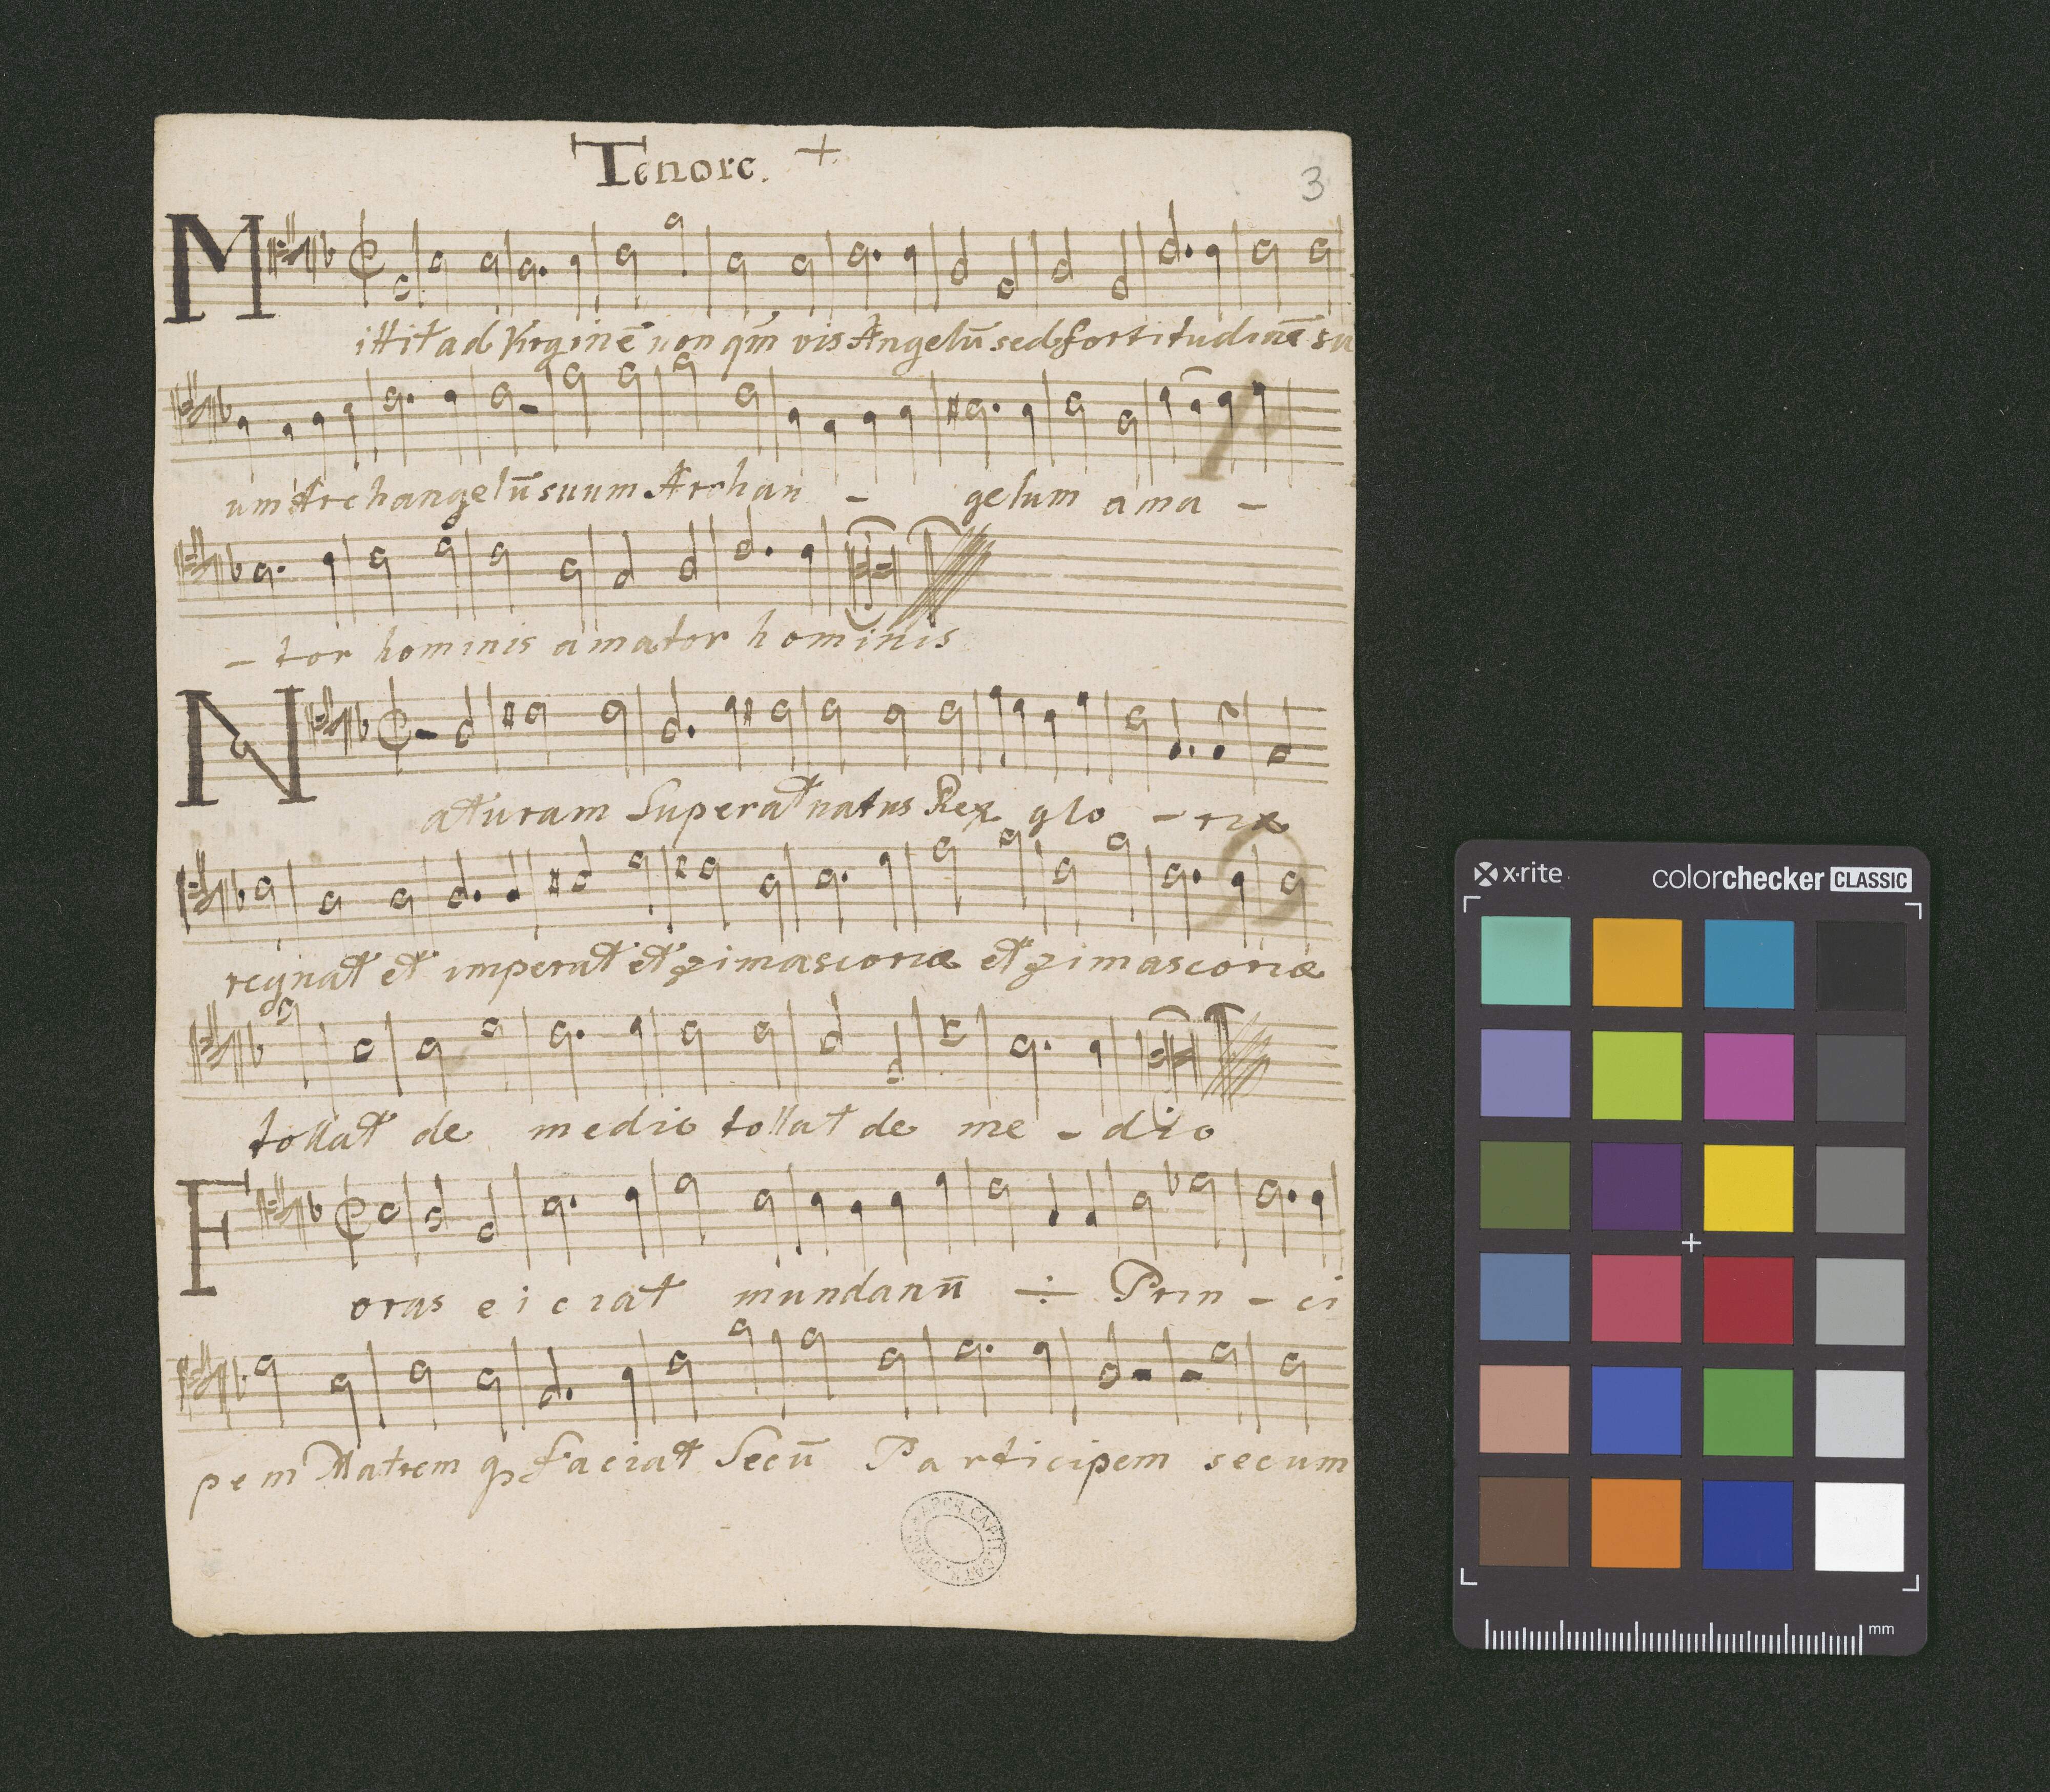 Tenore. +
3
Mittit ad Virginē non qm̄ vis Angelū sed fortitudinē su
um Archangelū suum Archan - gelum ama -
- tor hominis amator hominis
Naturam Superat natus Rex glo - riæ
regnat et imperat et zima scoriæ et zima scoriæ
tollat de medio tollat de me - dio
Foras eiciat mundanū ÷ Prin - ci
pem Matrem q faciat Secū Participem secum
ARCH. CAPIT.
x-rite
colorchecker CLASSIC
mm